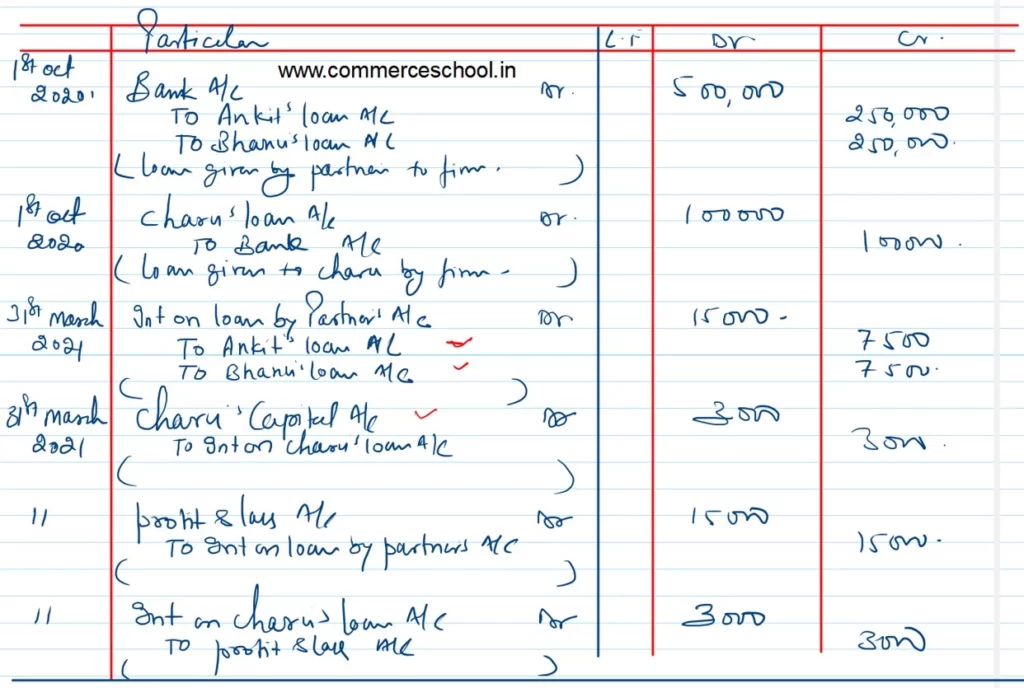 Particular L.F Dr Cr.
www.commerceschool.in
1st oct 2020' Bank A/C Dr. 500,000
To Ankit's loan A/C 250,000
To Bhanu's loan A/C 250,000.
(loan given by partner to firm.)
1st oct 2020 Charu's loan A/c Dr. 100000
To Bank A/C 100000.
(loan given to charu by firm-)
31st March 2021 Int on loan by Partner's A/c Dr 15000-
To Ankit's loan A/C 7500
To Bhanu's loan A/c 7500.
( )
31st March 2021 Charu's Capital A/c Dr 3000
To Int on charu's loan A/C 3000.
( )
11 profit & loss A/c Dr 15000
To Int on loan by partners A/C 15000.
( )
11 Int on charu's loan A/C Dr 3000
To profit & loss A/C 3000
( )